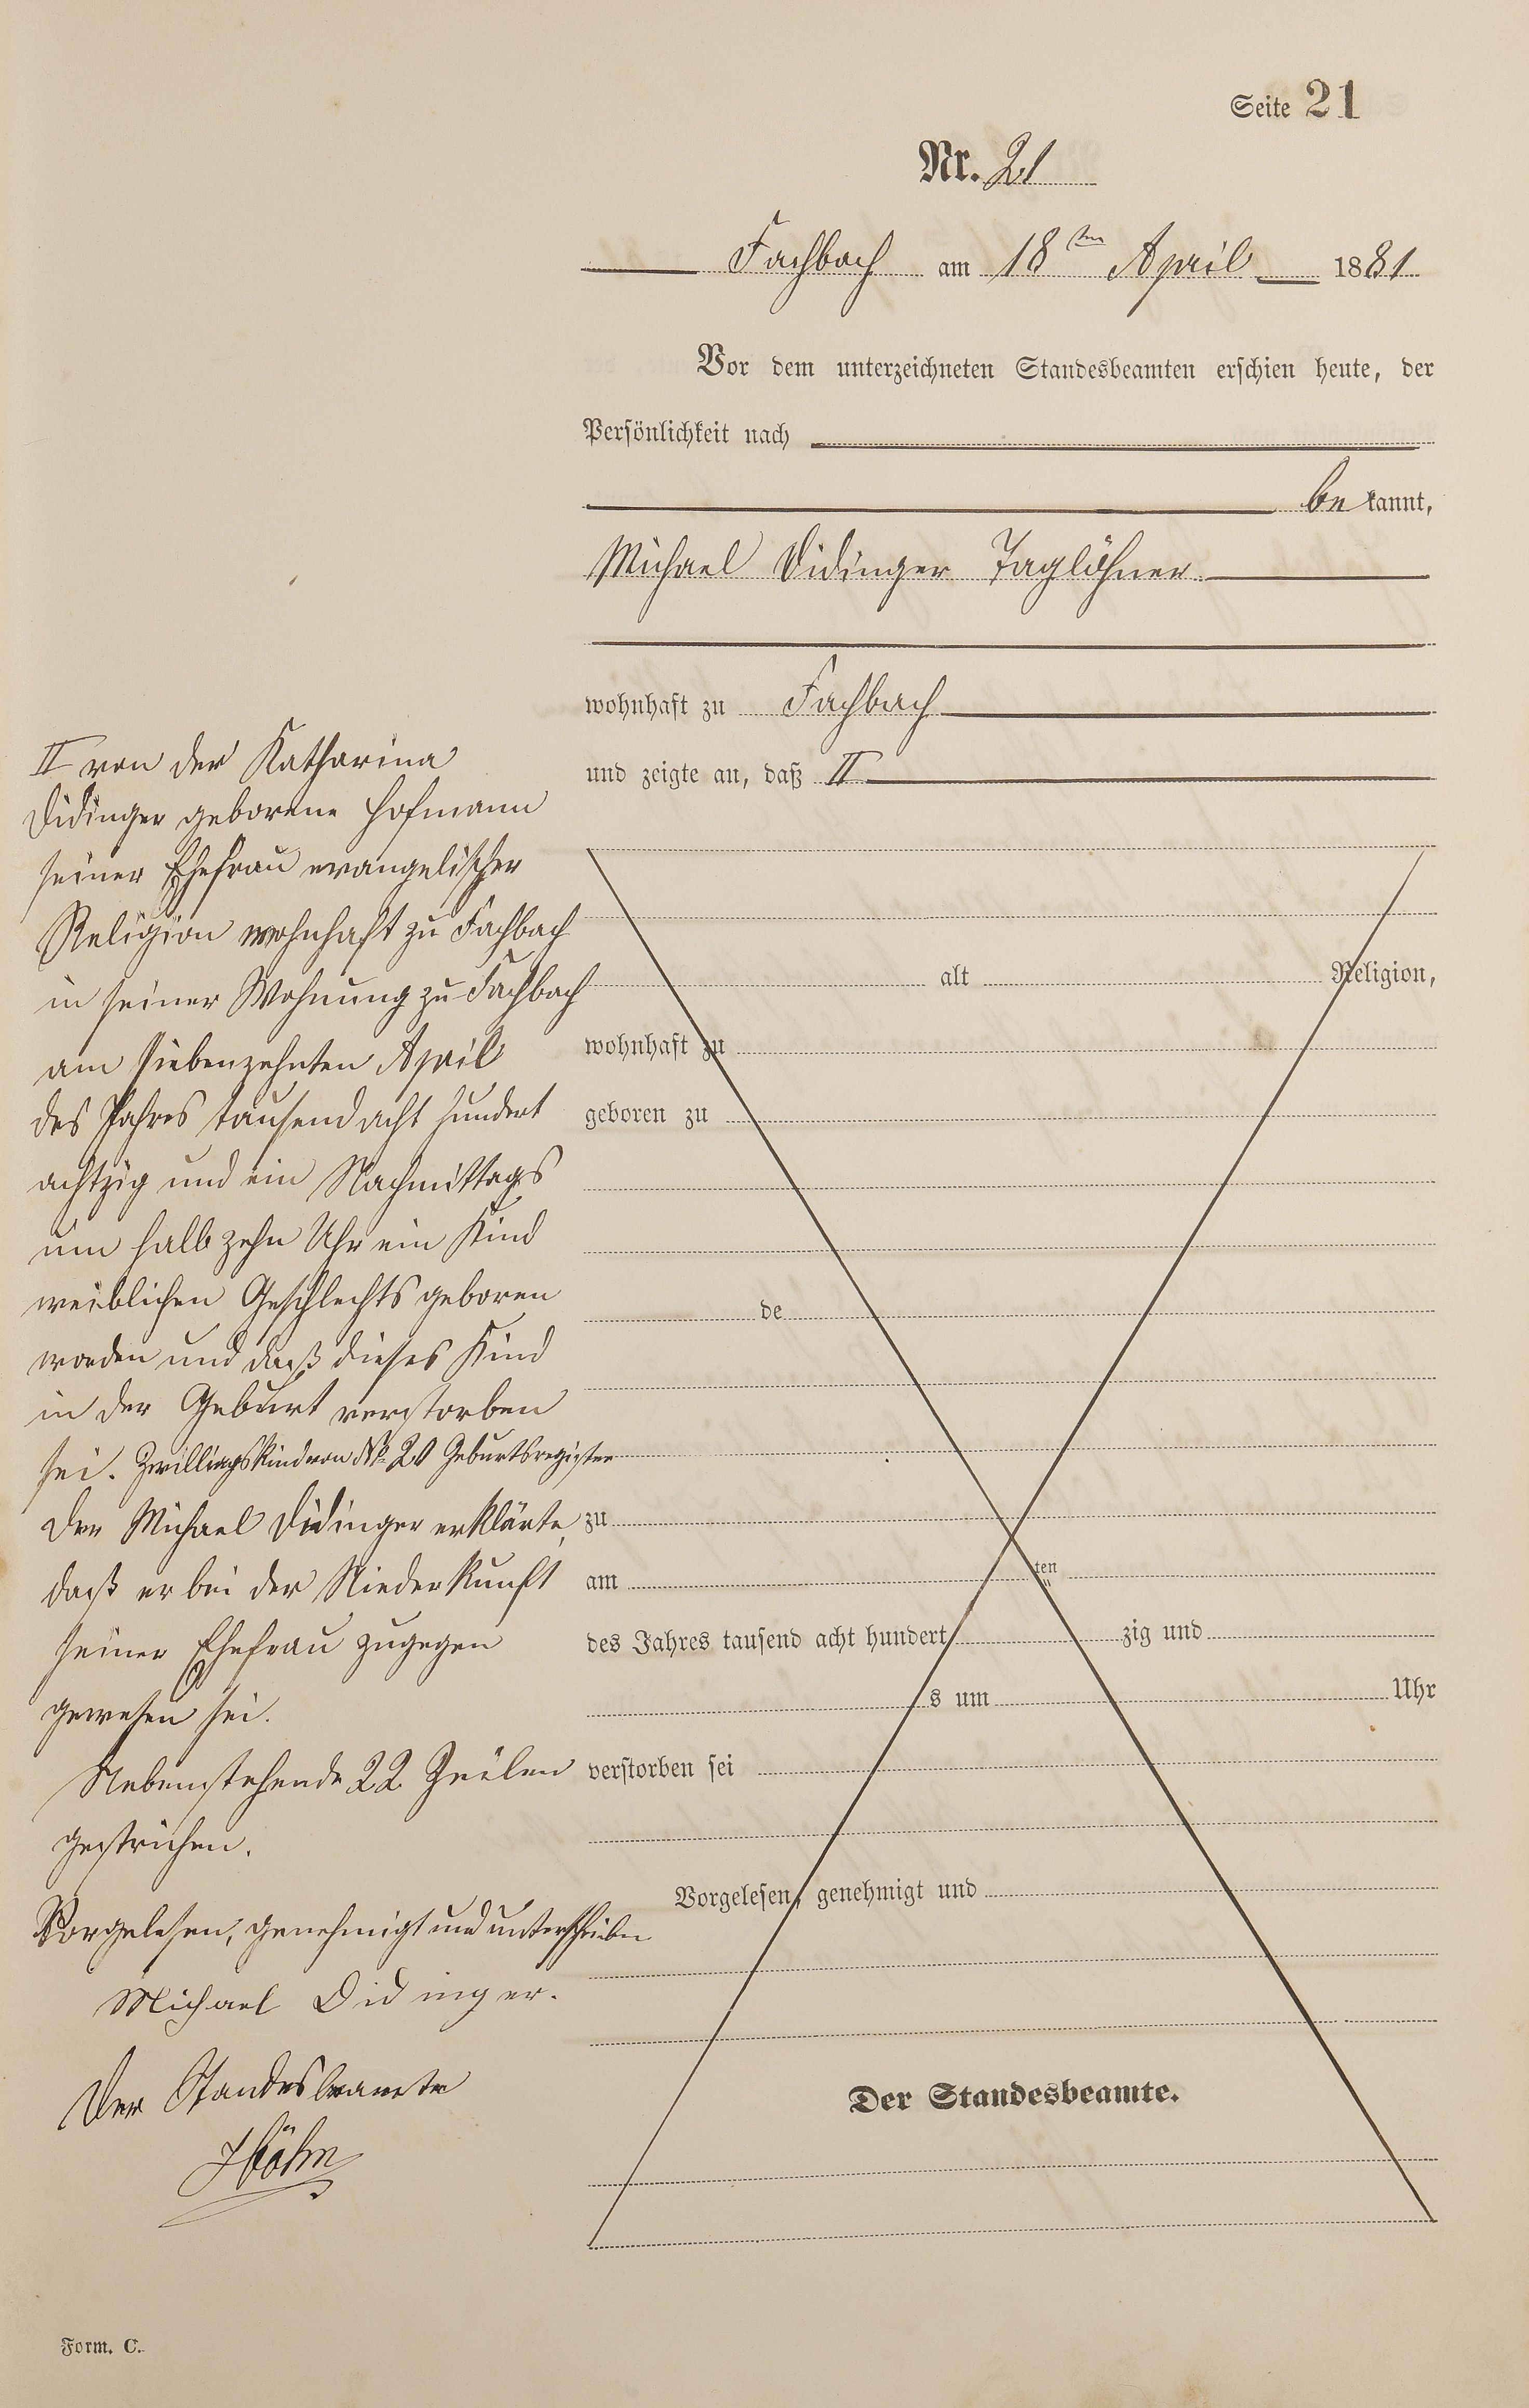 Seite 21
Nr. 21
Fachbach am 18ten April 1881
Vor dem unterzeichneten Standesbeamten erschien heute, der
Persönlichkeit nach
bekannt,
Michael Didinger Taglöhner
wohnhaft zu Fachbach
und zeigte an, daß II
II von der Katharina
Didinger geborene Hofmann
seiner Ehefrau evangelischer
Religion wohnhaft zu Fachbach
in seiner Wohnung zu Fachbach
am siebenzehnten April
des Jahres tausend acht hundert
achtzig und ein Nachmittags
um halb zehn Uhr ein Kind
weiblichen Geschlechts geboren
worden und daß dieses Kind
in der Geburt verstorben
sei. Zwillingskind von No 20 Geburtsregister
Der Michael Didinger erklärte,
daß er bei der Niederkunft
seiner Ehefrau zugegen
gewesen sei.
Nebenstehende 22 Zeilen
gestrichen.
Vorgelesen, genehmigt und unterschrieben
Michael Didinger.
Der Standesbeamte
Höhn
alt Religion,
wohnhaft zu
geboren zu
de
zu
am ten
des Jahres tausend acht hundert zig und
s um Uhr
verstorben sei
Vorgelesen, genehmigt und
Der Standesbeamte.
Form. C.